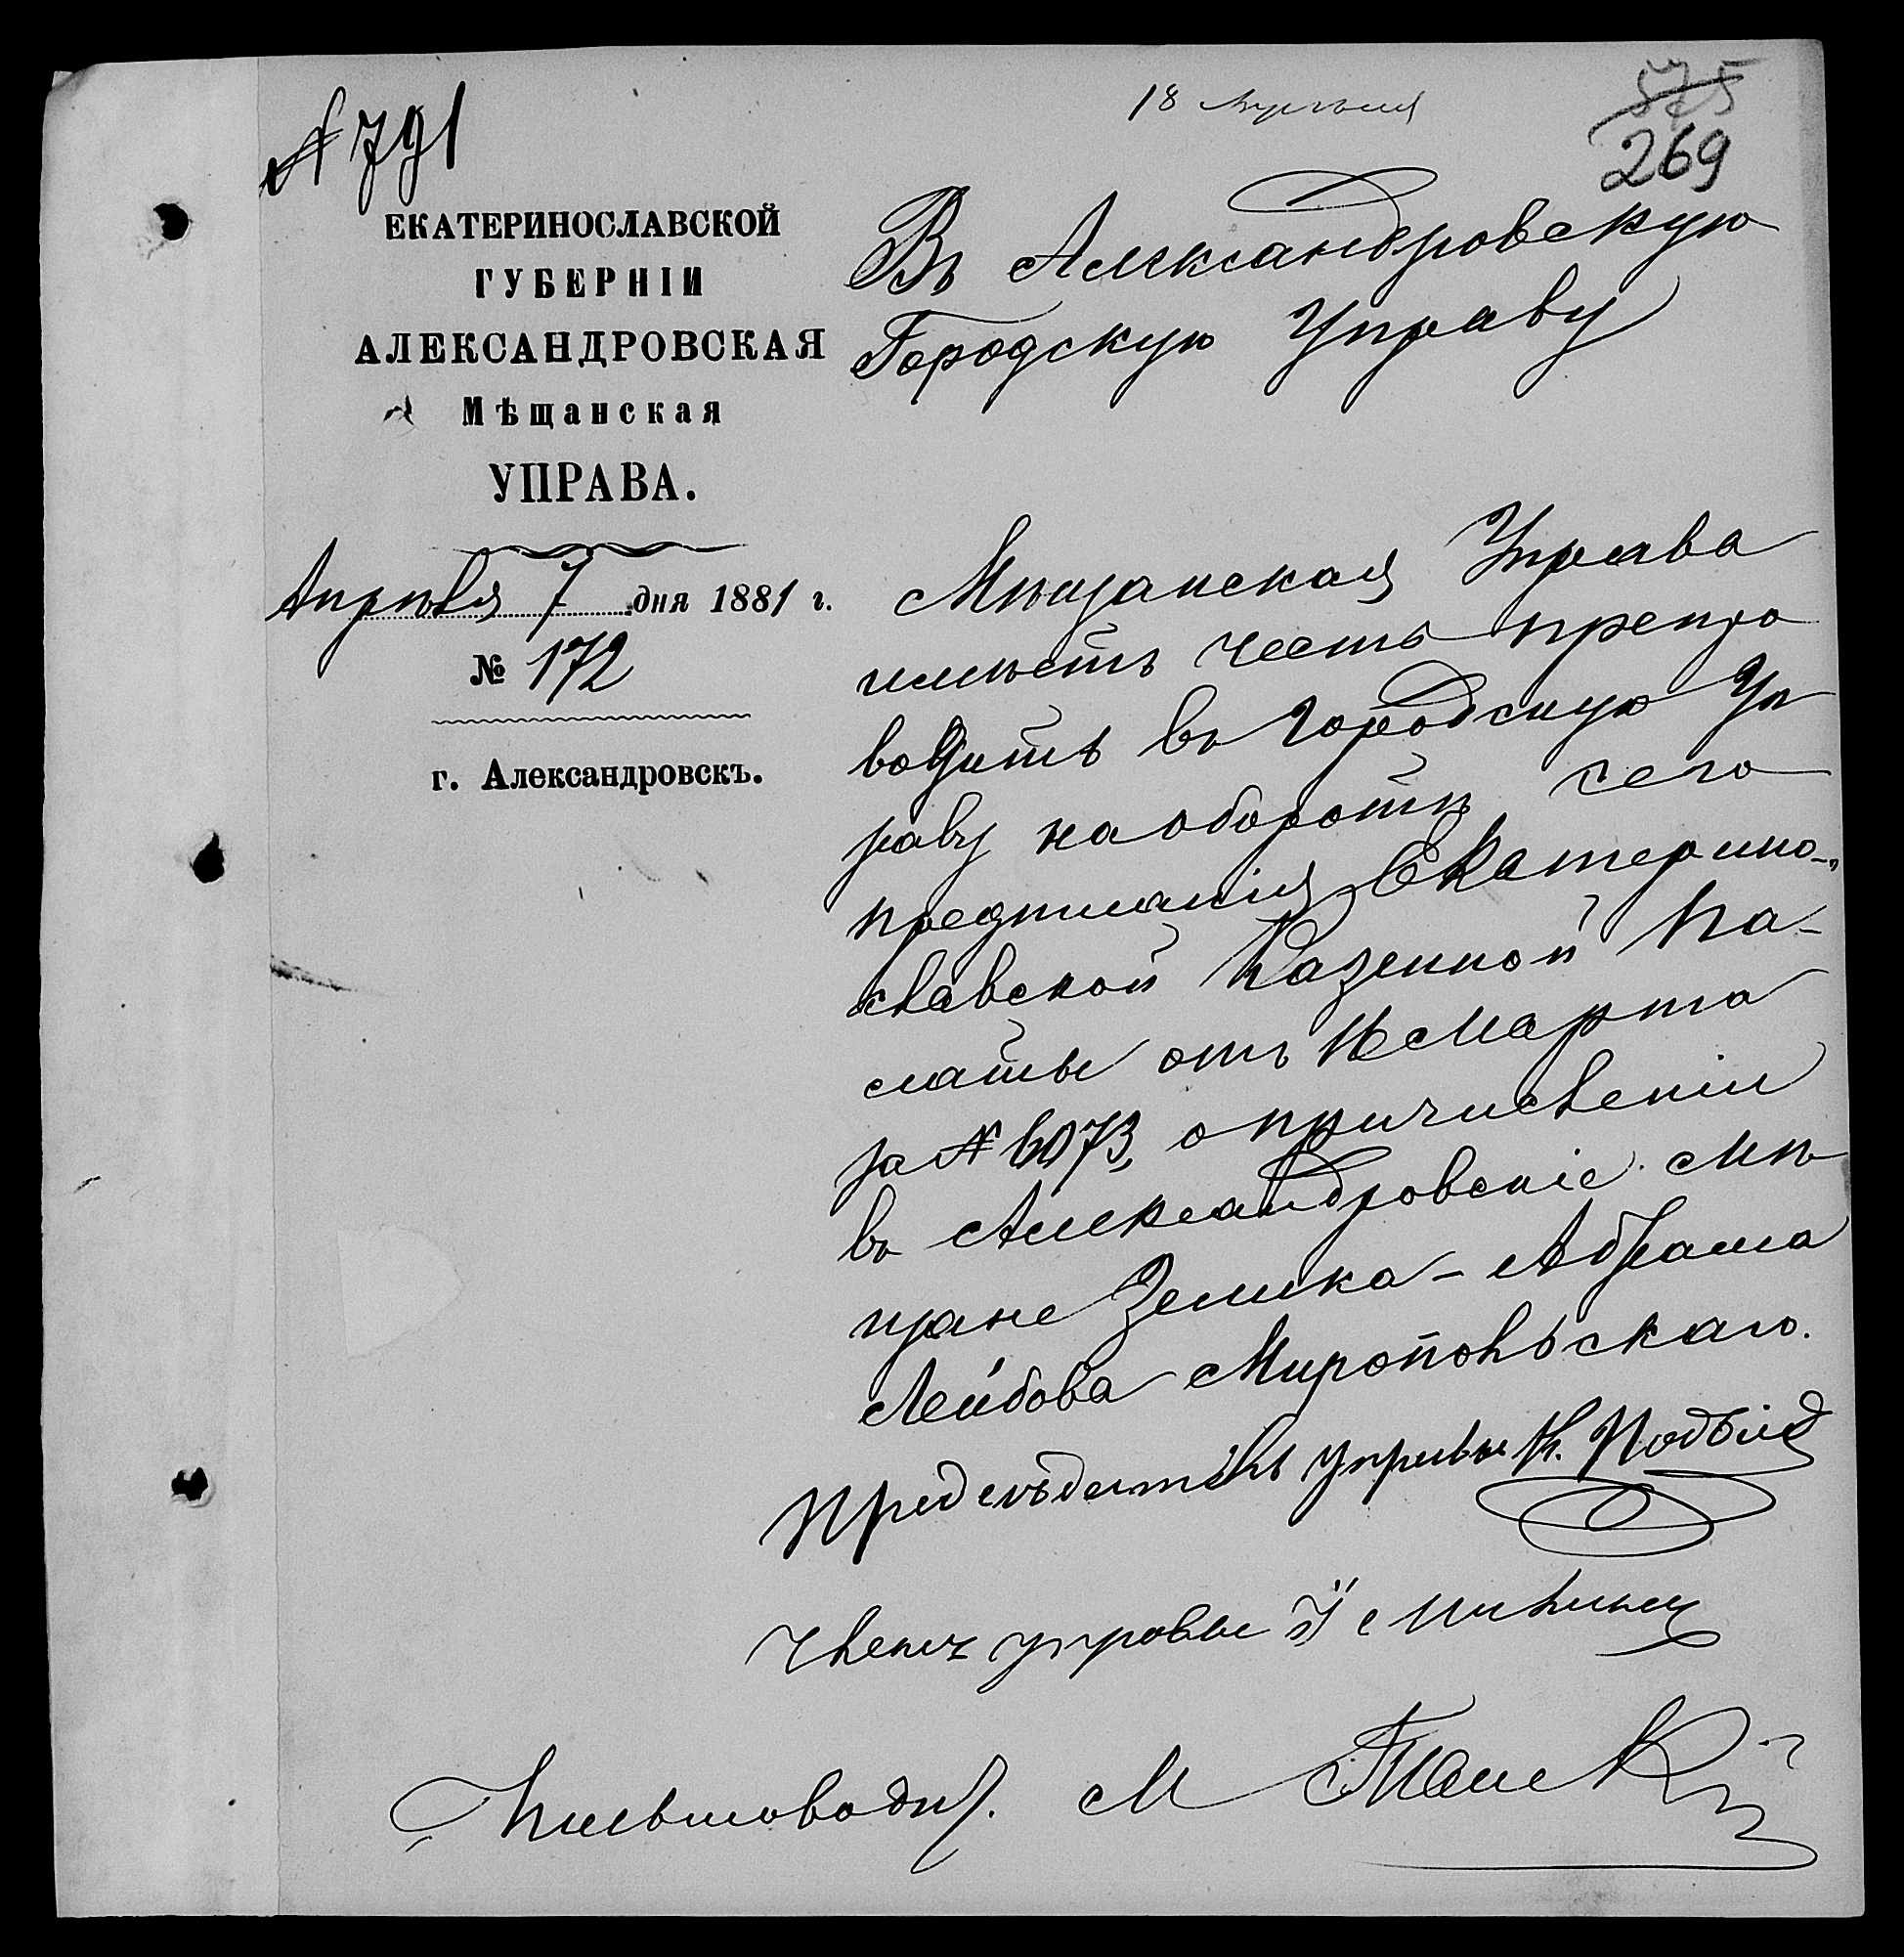 № 791
18 Апрѣля
575
269
ЕКАТЕРИНОСЛАВСКОЙ
ГУБЕРНІИ
АЛЕКСАНДРОВСКАЯ
Мѣщанская
УПРАВА.
Апрѣля 7 дня 1881 г.
№ 172
г. Александровскъ.
Въ Александровскую
Городскую Управу
Мѣщанская Управа
имѣетъ честь препро
водить въ Городскую Уп
раву на оборотѣ сего
предписанія Екатерино-
славской Казенной Па-
латы отъ 16 Марта
за № 6073, о причисленіи
въ Александровскіе мѣ
щане Зелика-Абрама
Лейбова Миропольскаго.
Предсѣдатель управы К.
Членъ управы
Письмоводит. М